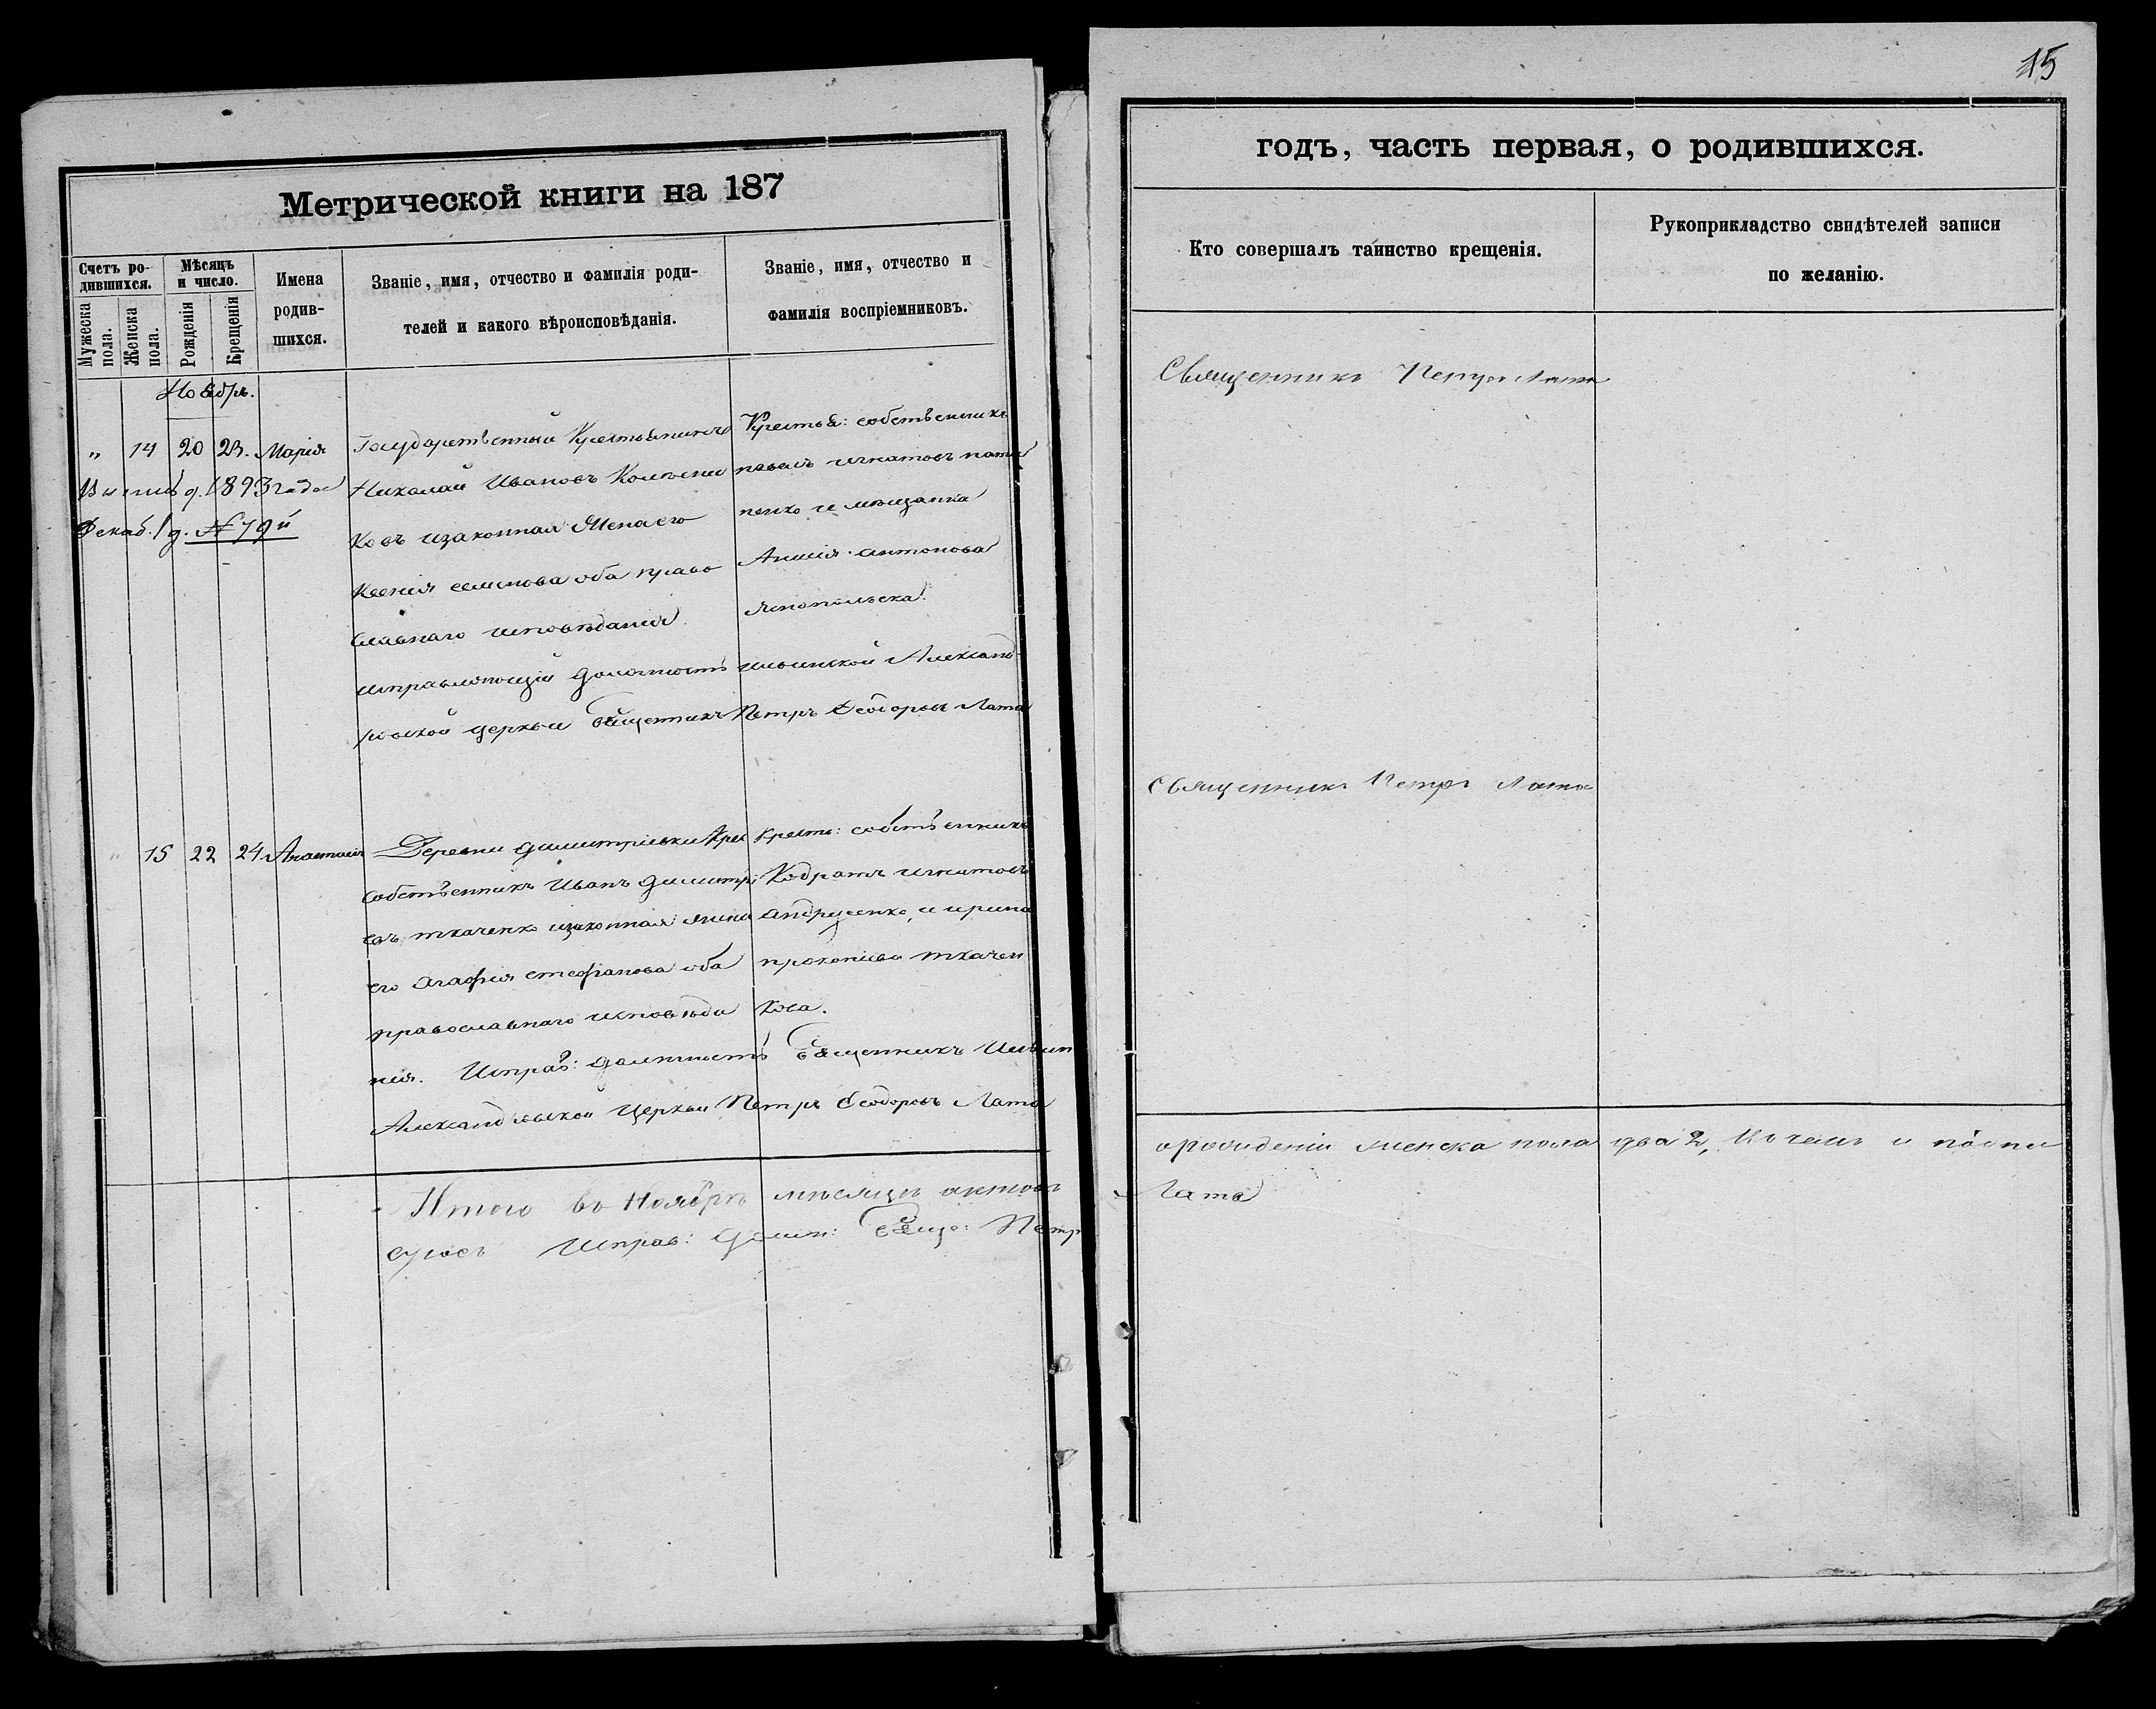 Метрической книги на 187
Счетъ ро-
дившихся.
Мѣсяцъ
и число.
Мужеска
пола.
Женска
пола.
Рожденія
Крещенія
Имена
родив-
шихся.
Званіе, имя, отчество и фамилія роди-
телей и какого вѣроисповѣданія.
Званіе, имя, отчество и
фамилія воспріемниковъ.
Ноябрь.
" 14 20 23. Марія
1893 года
Декаб. 1 д. № 79й
Государственный Крестьянинъ
Николай Ивановъ
ковъ и законная Жена его
Ксенія семенова оба право
славнаго исповѣданія
исправляющій должность ильинской Александ-
ровской церкви Священникъ Петръ Ѳеодоровъ Лата
Крестья: собственникъ
павелъ игнатовъ
пенко и мѣщанка
Антонова
" 15 22 24 Анастасія
Деревни димитріевки Крес
собственникъ Иванъ димитрі
евъ ткаченко и законная жена
его Агафія стефанова оба
православнаго исповѣда
нія. Исправ: должность Священникъ Ильин
Александровской Церкви Петръ Ѳеодоровъ Лата
Кресть: собственникъ
Кодратъ игнатовъ
андрусенко, и ирина
прокопіева ткачен
кова.
Итого въ Ноябрѣ мѣсяцѣ актовъ
Исправ: Долж: Свяще: Петр
15
годъ, часть первая, о родившихся.
Кто совершалъ таинство крещенія.
Рукоприкладство свидѣтелей записи
по желанію.
Священникъ Петръ Лата
Священникъ Петръ Лата
о рожденіи женска пола два 2, Въ чемъ и
Лата